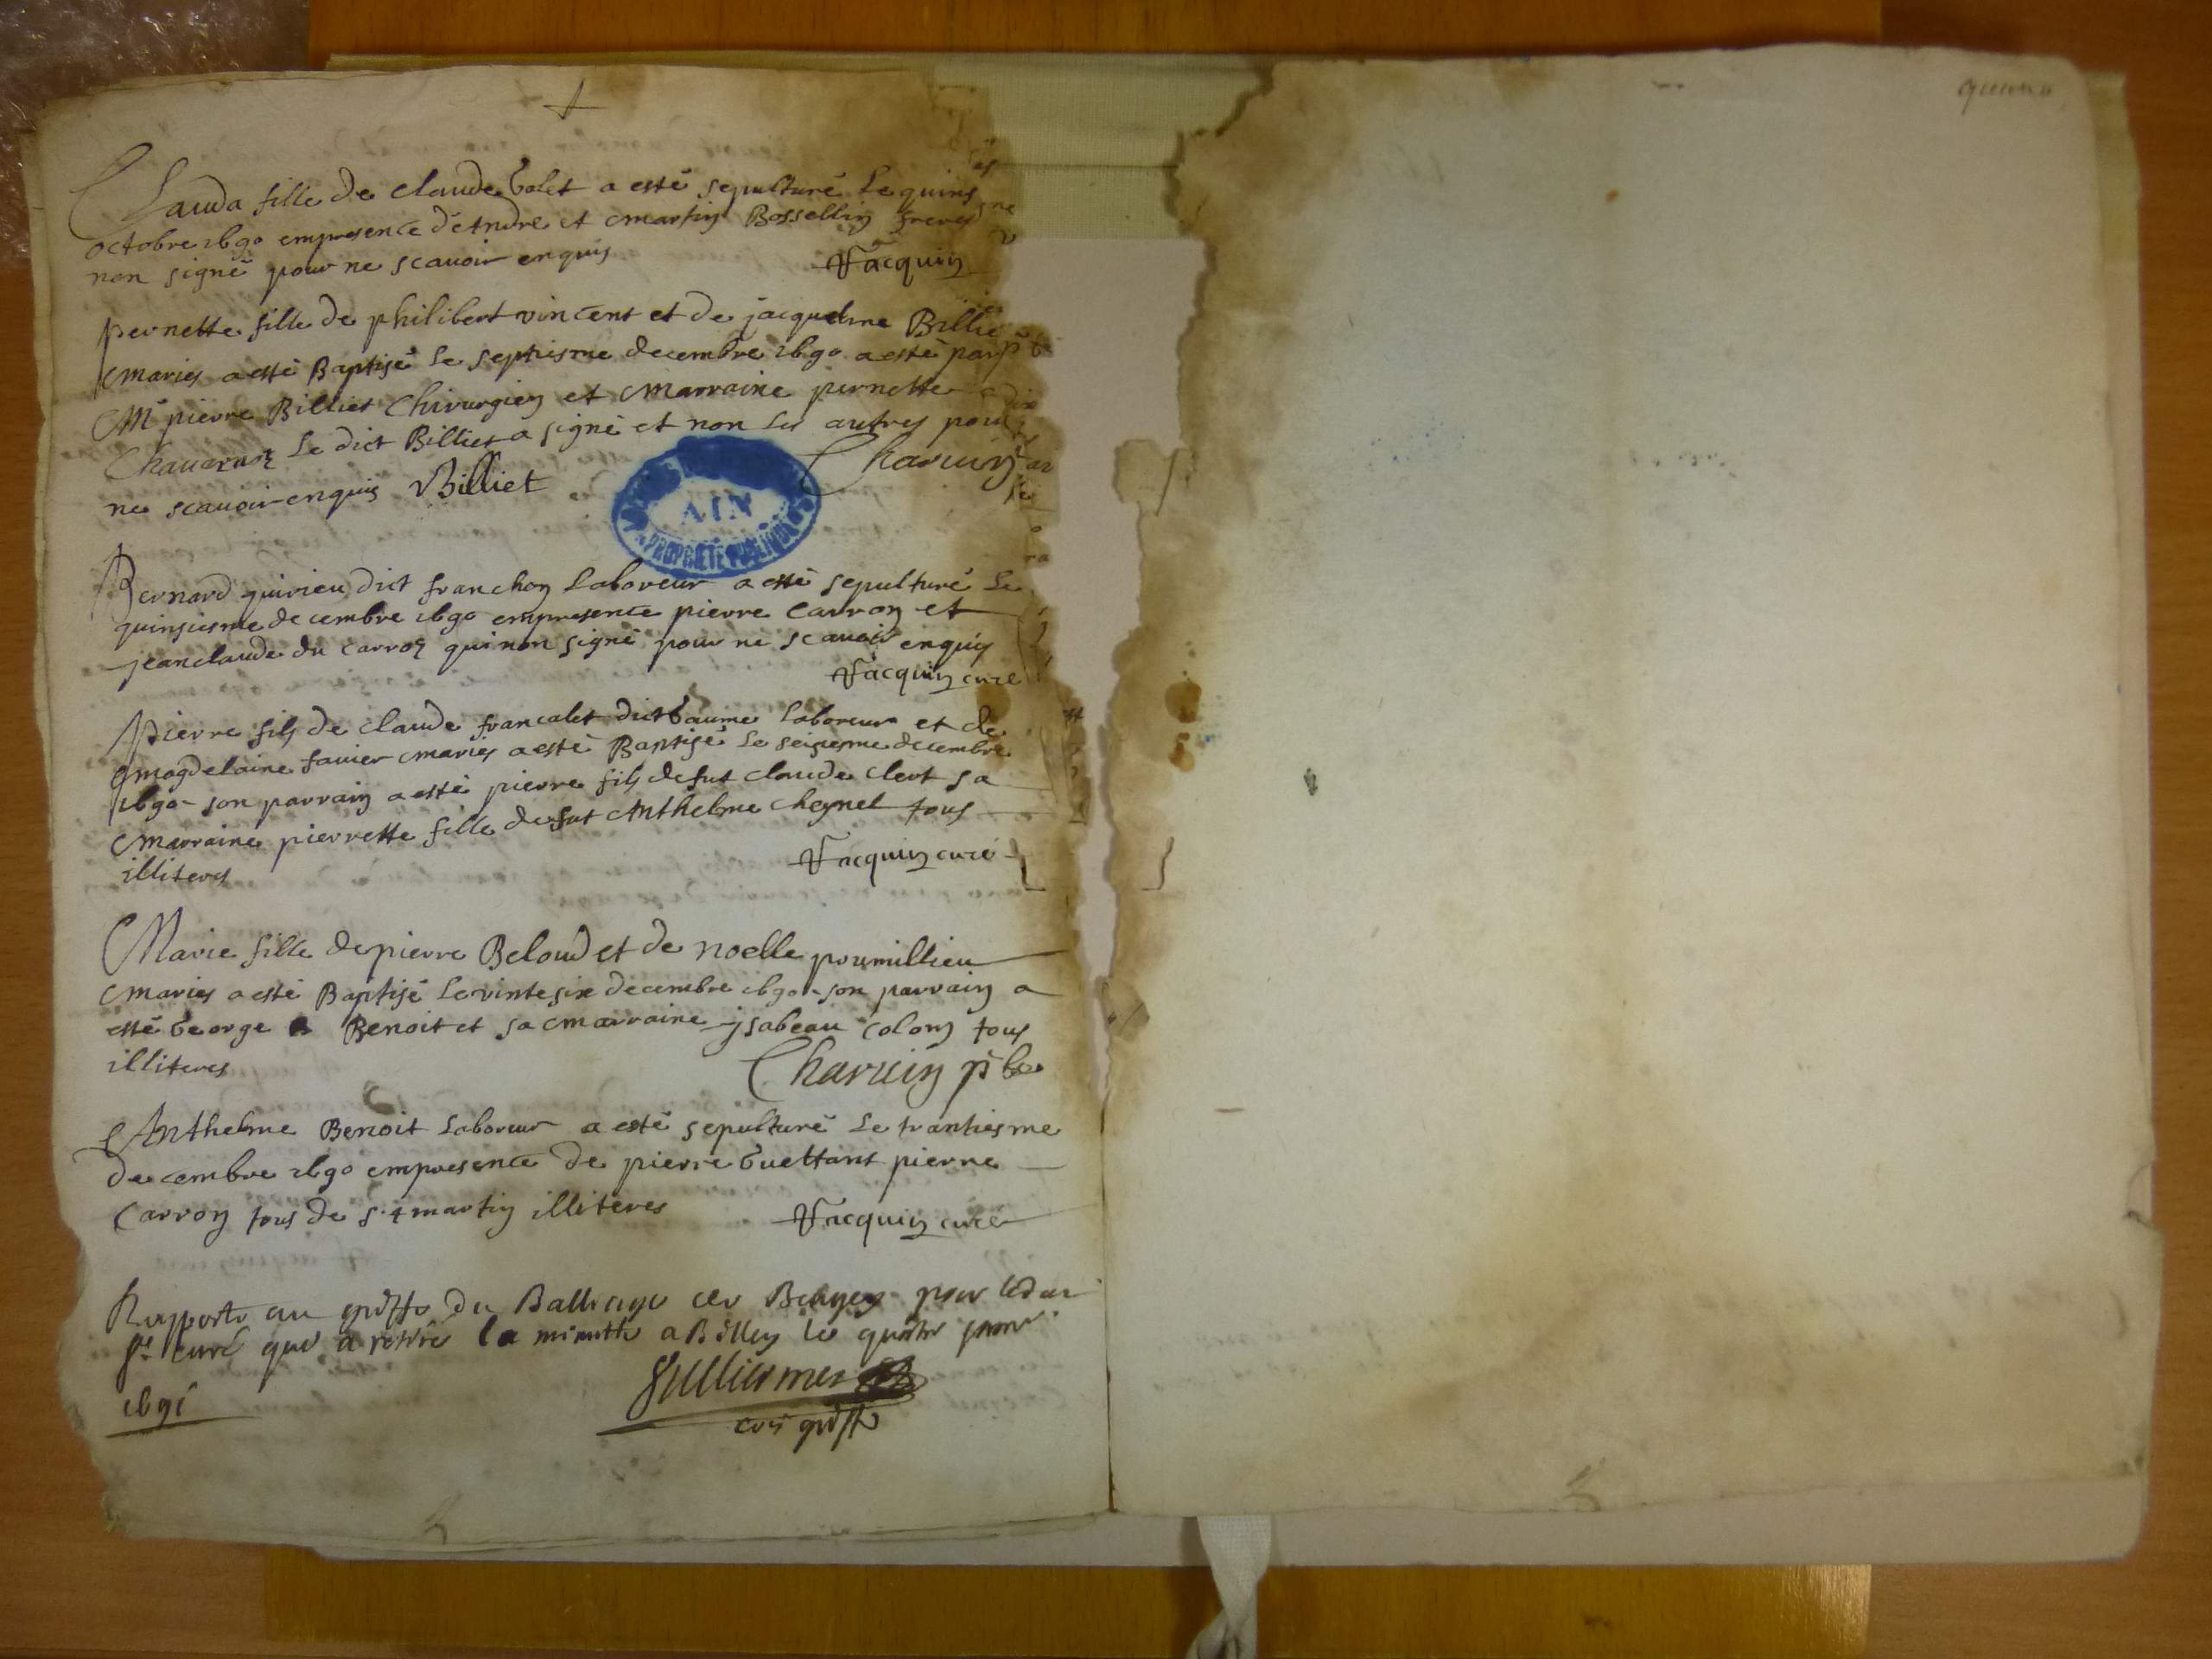 Clauda fille de claude Golet a esté sepulturé Le quins
octobre 1690 empresence d'Andre et martin Bossellin freres
non signé pour ne scauoir enquis
Jacquin
pernette fille de philibert vincent et de jacqueline Billie
maries a esté Baptisé le septiesme decembre 1690 a esté par
Mr pierre Billiet Chirurgien et Marraine pernette
Le dict Billiet a signé et non les autres pour
ne scauoir enquis Billiet
Charuin
AIN
PROPRIETE PUBLIQUE
Bernard quirieu dict franchon Laboreur a esté sepulturé Le
quinsiesme decembre 1690 empresence pierre Carron et
jeanclaude du carron qui non signé pour ne scauoir enquis
Jacquin curé
Pierre fils de claude francalet dict Gaume Laboreur et de
magdelaine fauier maries a esté Baptisé Le seisiesme decembre
1690 son parrain a esté pierre fils de fut claude clert sa
marraine pierrette fille de fut Anthelme chaynel tous
illiteres
Jacquin curé
Marie fille de pierre Beloud et de noelle poumillieu
maries a esté Baptisé Le vintesix decembre 1690 son parrain a
esté George Benoit et sa marraine ysabeau colomb tous
illiteres
Charuin pbre
Anthelme Benoit Laboreur a esté sepulturé Le trantiesme
decembre 1690 empresence de pierre Guettant pierre
Carron tous de St martin illiteres
Jacquin curé
Rapporté au greffe du Balliage de Bugey pour ledit
sr curé qui a retiré la minutte a Belley le quatre janvr
1691
Gulliermet
cois greffe